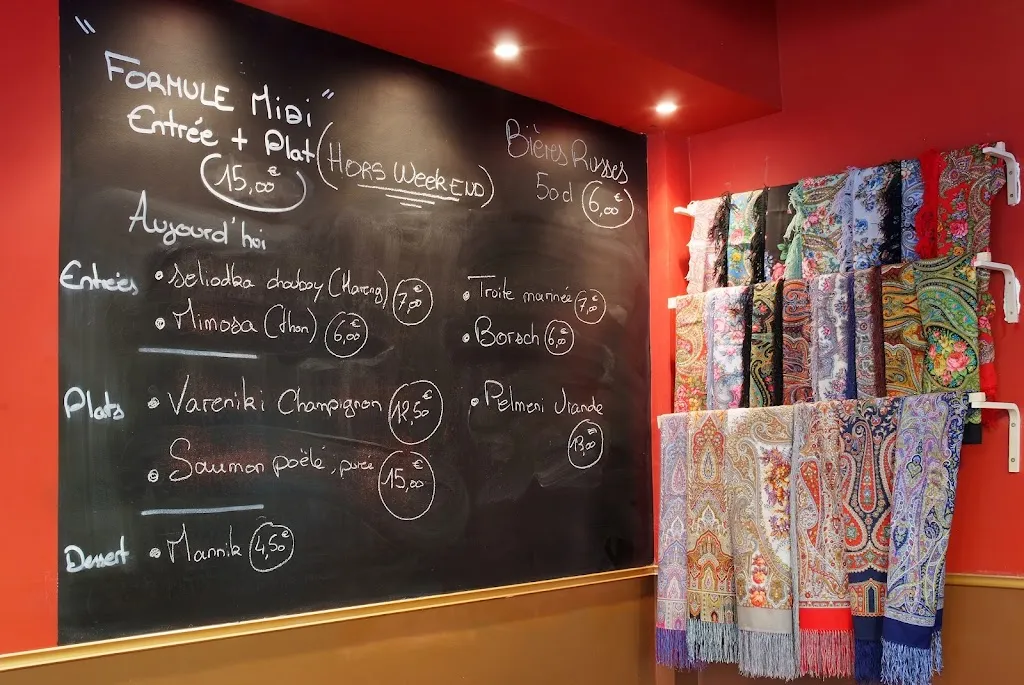 " FORMULE MIDI "
Entrée + Plat (HORS WEEKEND)
15,00€
Bières Russes
50cl 6,00€
Aujourd'hui
Entrées
• Seliodka chouboy (Hareng) 7,00€
• Mimosa (thon) 6,00€
• Troite marinée 7,00€
• Borsch 6,00€
Plats
• Vareniki Champignon 12,50€
• Saumon poëlé, purée 15,00€
• Pelmeni Viande
13,00€
Dessert
• Mannik 4,50€